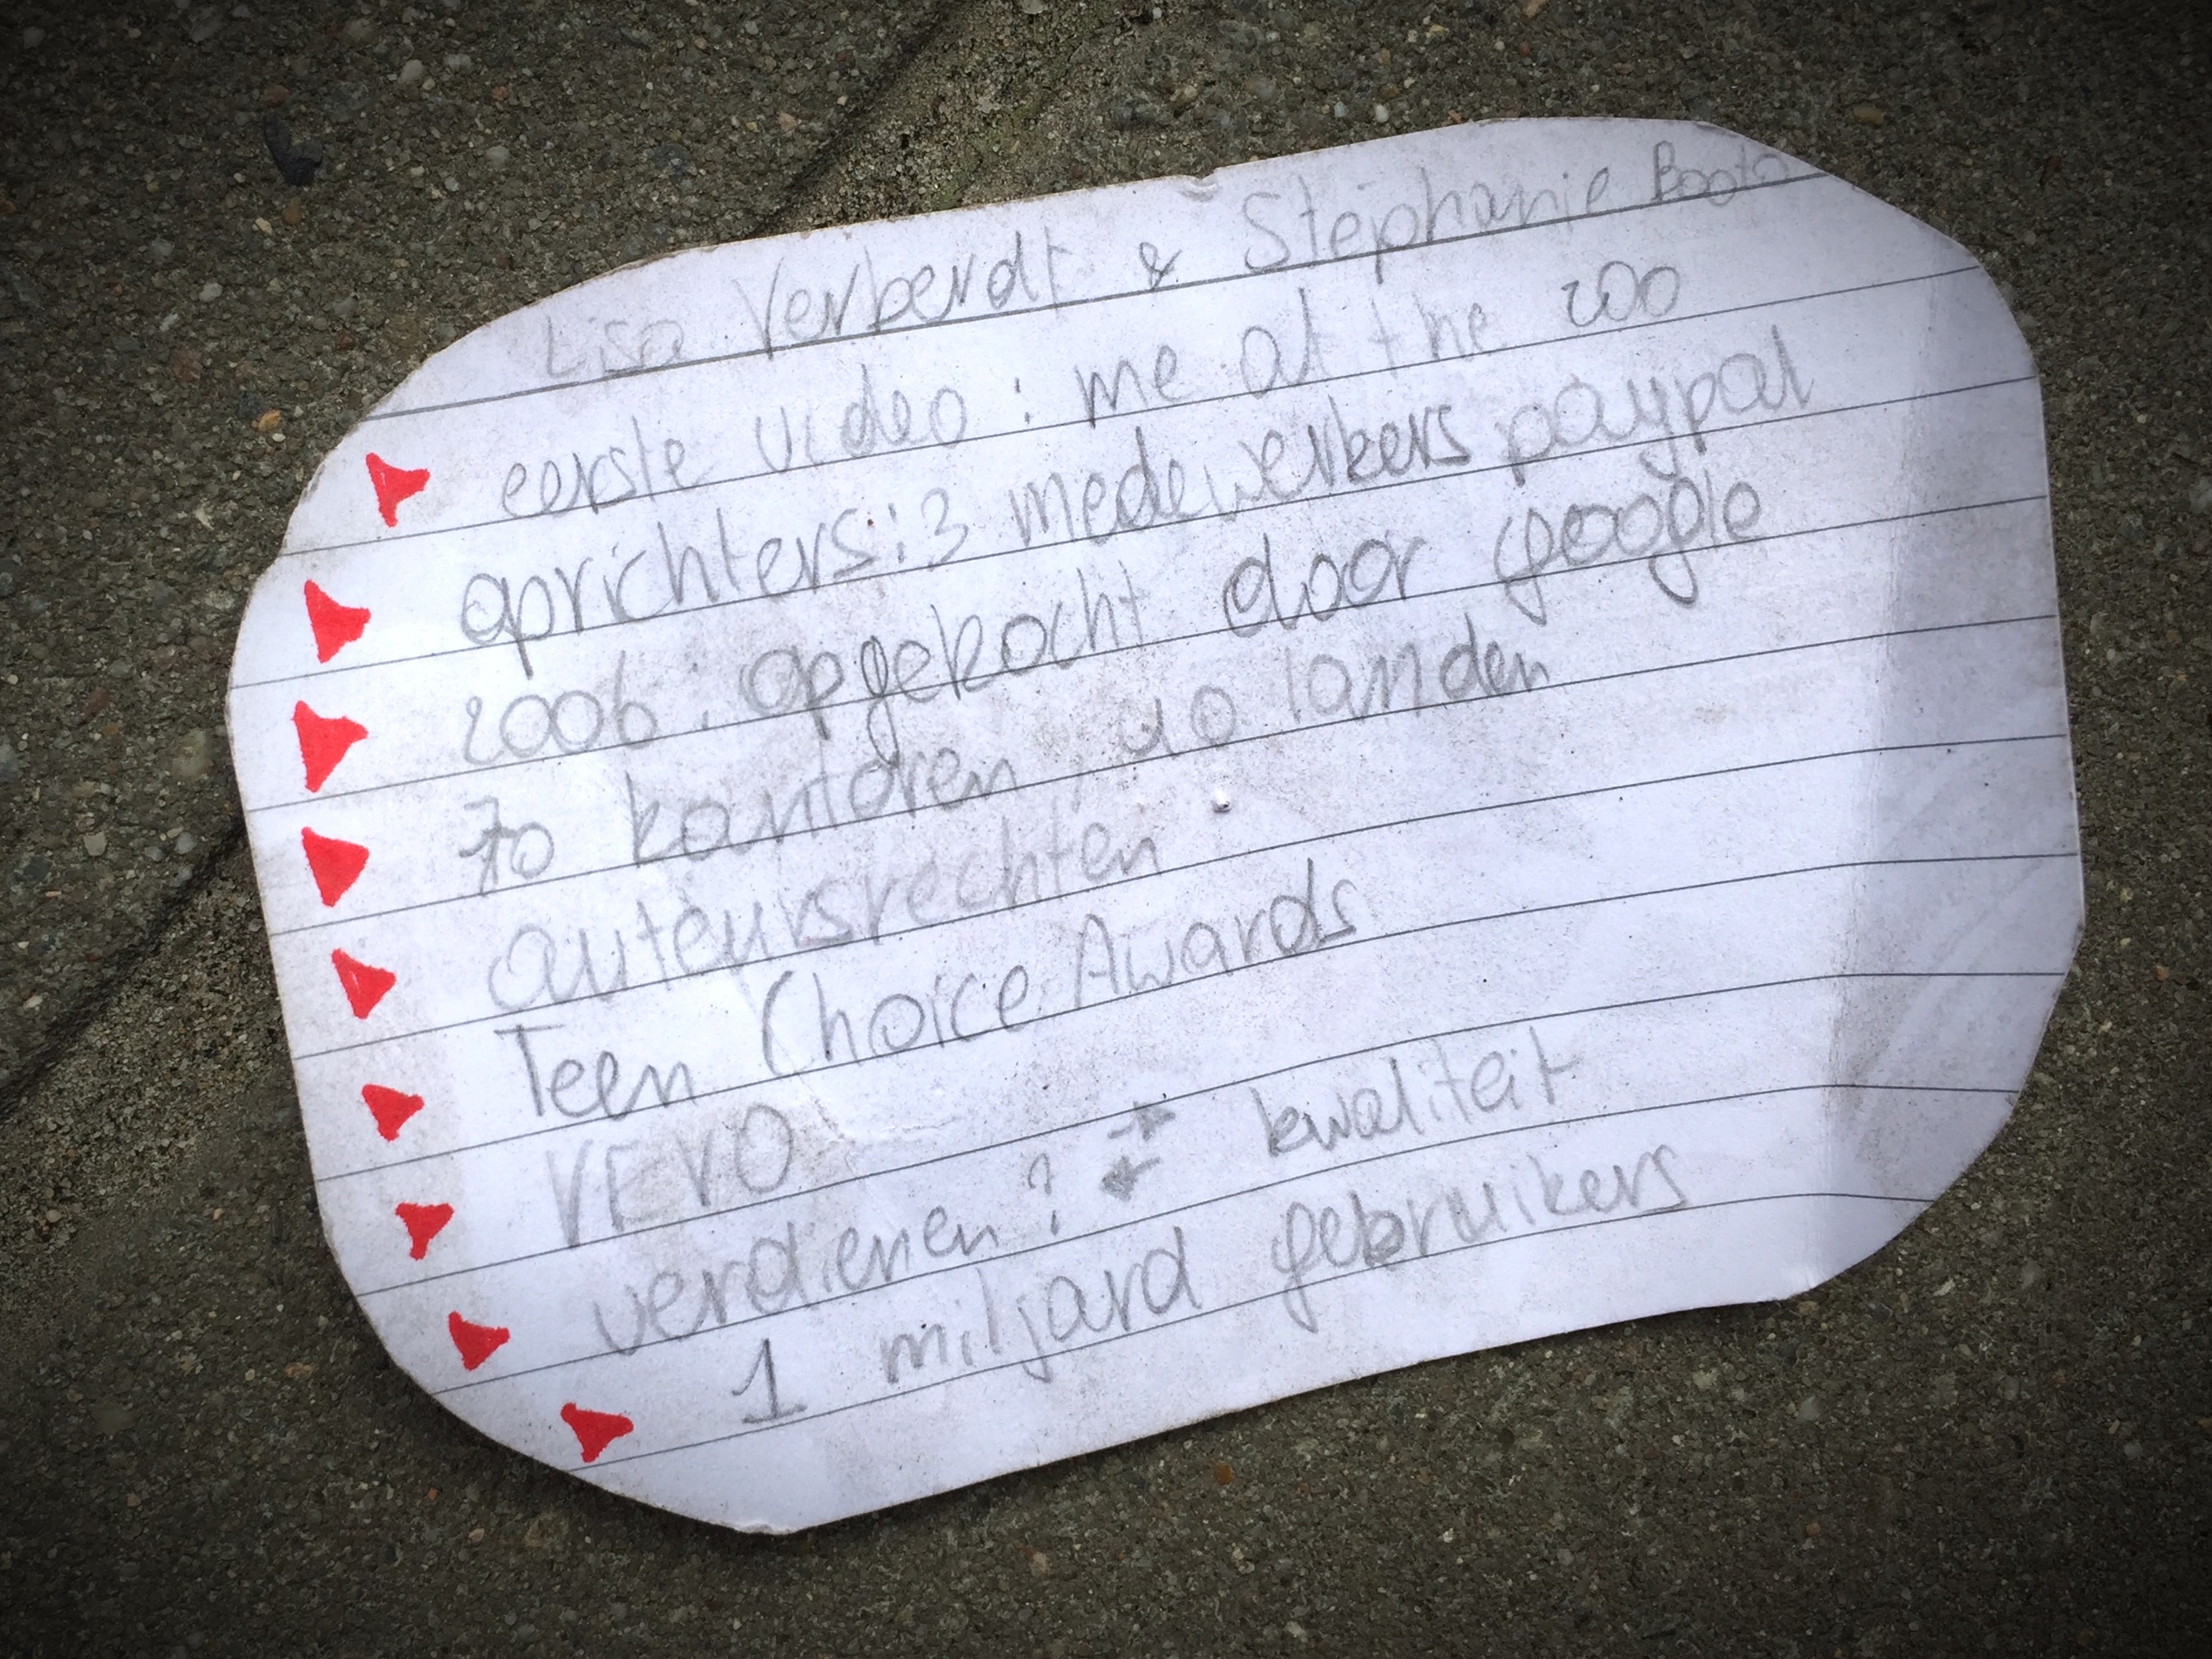 Lisa Verberdt & Stephanie
eerste video : me at the zoo
oprichters : 3 medewerkers paypal
2006 : opgekocht door google
70 kantoren, 40 landen
auteursrechten
Teen Choice Awards
VEVO
verdienen? ⇄ kwaliteit
1 miljard gebruikers